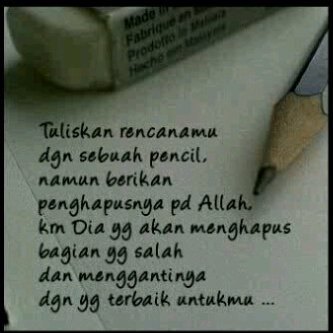 Made in
Fabrique en
Prodotto in Malaysia
Hecho en Malaysia
Tuliskan rencanamu
dgn sebuah pencil,
namun berikan
penghapusnya pd Allah,
krn Dia yg akan menghapus
bagian yg salah
dan menggantinya
dgn yg terbaik untukmu ...